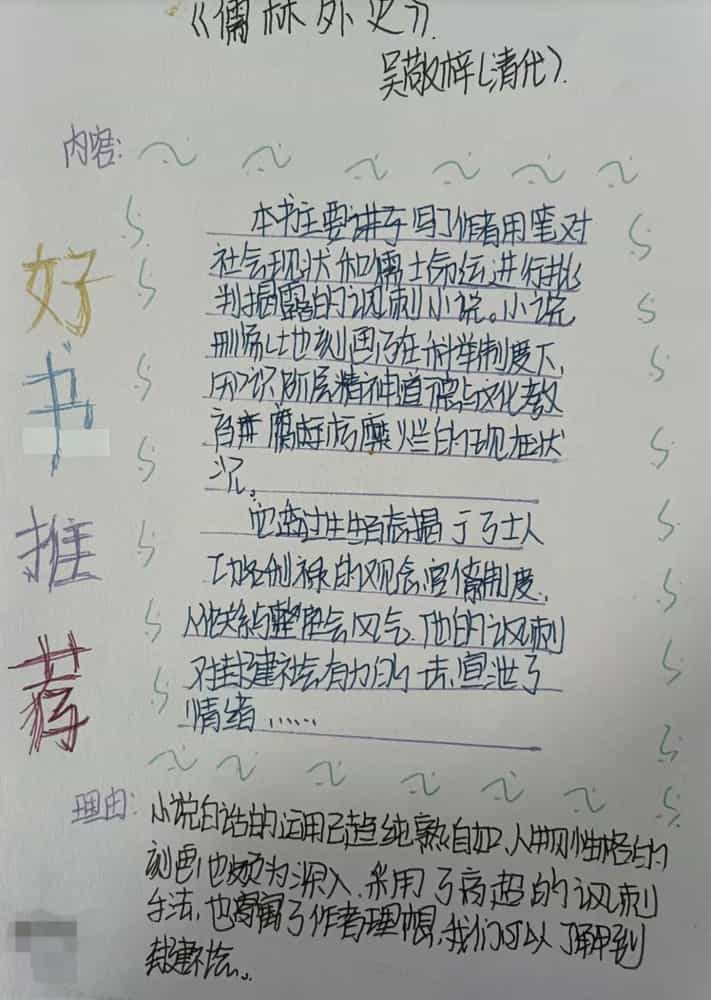 《儒林外史》
吴敬梓(清代)
内容:
好书推荐
本书主要讲了写了作者用笔对
社会现状和儒士命运进行批
判揭露的讽刺小说。小说
地刻画了在科举制度下,
阶层精神道德与文化教
腐朽糜烂的现状
况。
它通过生揭了士人
功名利禄的观念官僚制度、
人关系与整会风气,他的讽刺
对封建社会有力的一击,宣泄了
情绪……
理由:
小说白话的运用已趋纯熟自如,人物性格的
刻画也颇为深入,采用了高超的讽刺
手法,也寓了作者理想,我们可以了解到
封建社会。